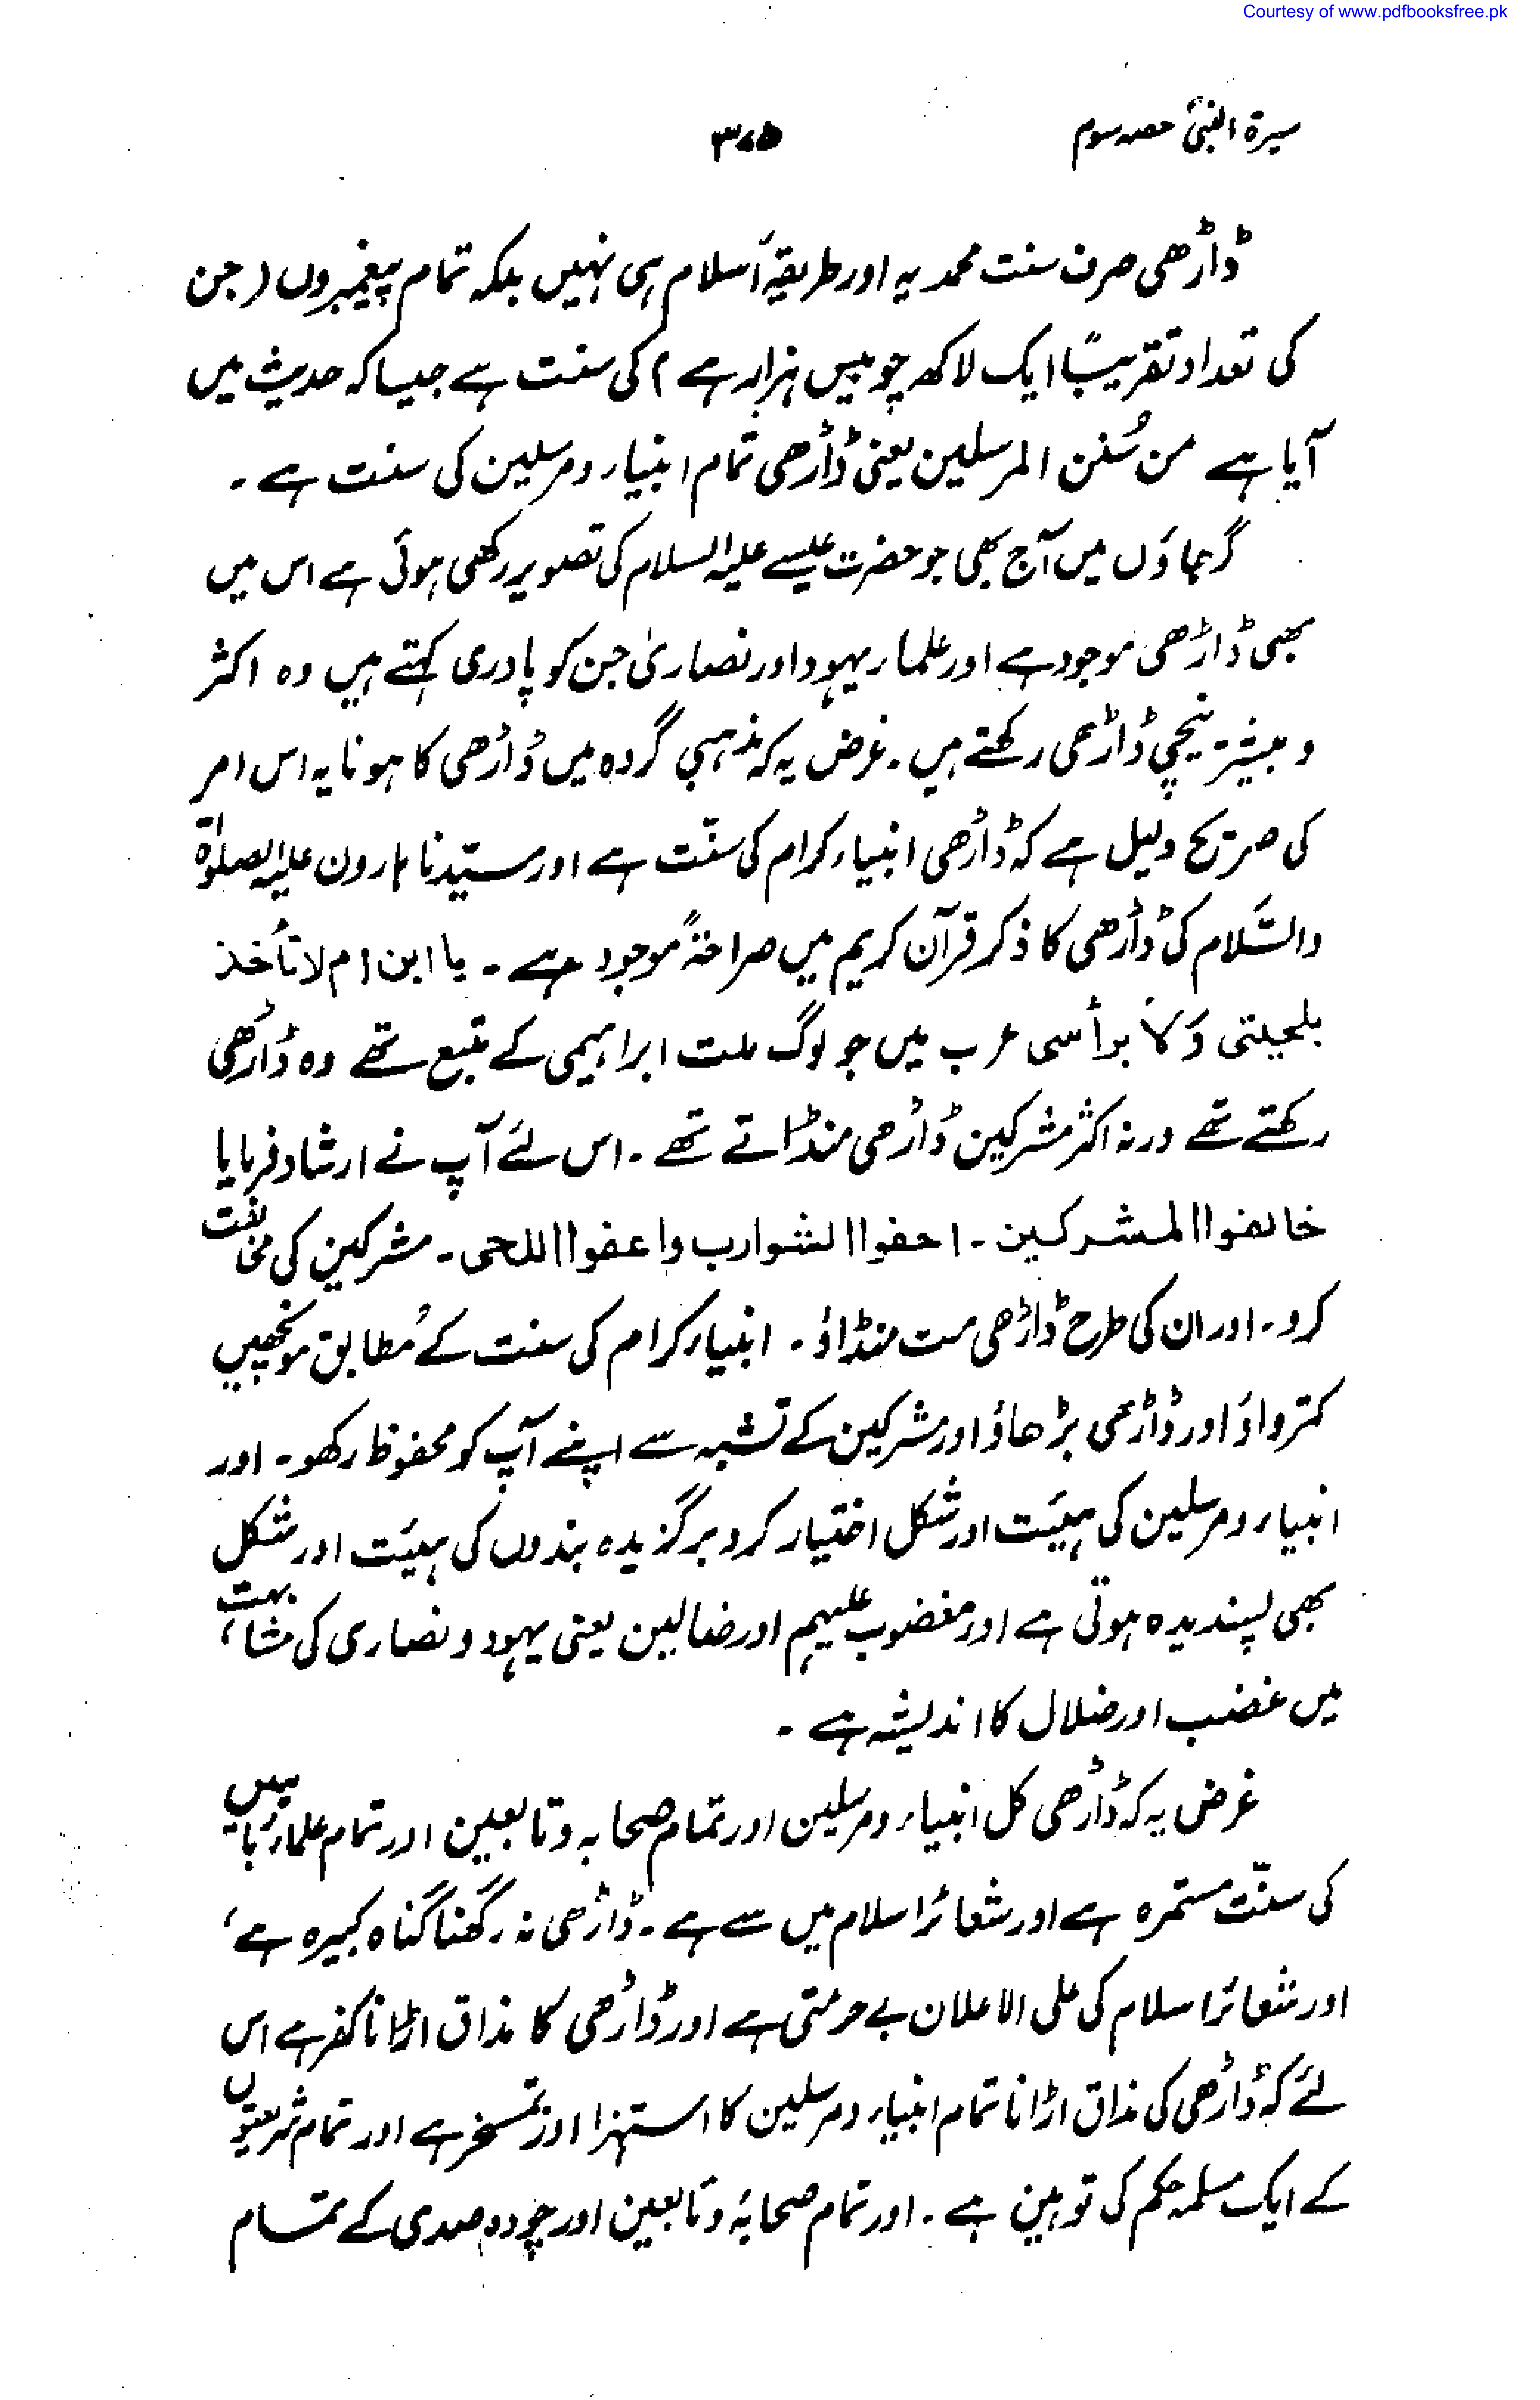 Courtesy of www.pdfbooksfree.pk
سیرۃ النبیؐ حصہ سوم
۳۷۵
ڈاڑھی صرف سنت محمدیہ اور طریقۂ اسلام ہی نہیں بلکہ تمام پیغمبروں (جن
کی تعداد تقریبًا ایک لاکھ چوبیس ہزار ہے) کی سنت ہے جیسا کہ حدیث میں
آیا ہے من سُنن المرسلین یعنی ڈاڑھی تمام انبیاء ومرسلین کی سنت ہے۔
گرجاؤں میں آج بھی جو حضرت عیسے علیہ السلام کی تصویر رکھی ہوئی ہے اس میں
بھی ڈاڑھی موجود ہے اور علماء یہود اور نصاریٰ جن کو پادری کہتے ہیں وہ اکثر
و بیشتر نیچی ڈاڑھی رکھتے ہیں۔ غرض یہ کہ مذہبی گروہ میں ڈاڑھی کا ہونا یہ اس امر
کی صریح دلیل ہے کہ ڈاڑھی انبیاء کرام کی سنّت ہے اور سیّدنا ہارون علیہ الصلوٰۃ
والسَّلام کی ڈاڑھی کا ذکر قرآن کریم میں صراحۃً موجود ہے۔ یا ابن ام لا تأخذ
بلحیتی وَلَا برأسی عرب میں جو لوگ ملت ابراہیمی کے متبع تھے وہ ڈاڑھی
رکھتے تھے ورنہ اکثر مشرکین ڈاڑھی منڈاتے تھے۔ اس لئے آپ نے ارشاد فرمایا
خالفوا المشرکین۔ احفوا الشوارب واعفوا اللحی۔ مشرکین کی مخالفت
کرو۔ اور ان کی طرح ڈاڑھی مت منڈاؤ۔ انبیاء کرام کی سنت کے مُطابق مونچھیں
کترواؤ اور ڈاڑھی بڑھاؤ اور مشرکین کے تشبہ سے اپنے آپ کو محفوظ رکھو۔ اور
انبیاء ومرسلین کی ہیئت اور شکل اختیار کرو برگزیدہ بندوں کی ہیئت اور شکل
بھی پسندیدہ ہوتی ہے اور مغضوب علیہم اور ضالین یعنی یہود و نصاری کی مشابہت
میں غضب اور ضلال کا اندیشہ ہے۔
غرض یہ کہ ڈاڑھی کل انبیاء ومرسلین اور تمام صحابہ وتابعین اور تمام علماء ربانیین
کی سنّت مستمرہ ہے اور شعائر اسلام میں سے ہے۔ ڈاڑھی نہ رکھنا گناہ کبیرہ ہے،
اور شعائر اسلام کی علی الاعلان بے حرمتی ہے اور ڈاڑھی کا مذاق اڑانا کفر ہے اس
لئے کہ ڈاڑھی کی مذاق اڑانا تمام انبیاء ومرسلین کا استہزا اور تمسخر ہے اور تمام شریعتوں
کے ایک مسلمہ حکم کی توہین ہے۔ اور تمام صحابہ وتابعین اور چودہ صدی کے تمام